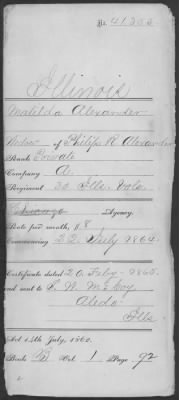 No. 41,335
Illinois
Matilda Alexander
Widow of Philip R. Alexander
Rank Private
Company A.
Regiment 30 Ills. Vols.
Chicago Agency.
Rate per month, $8
Commencing 22 July 1864.
Certificate dated 20 Feby 1865.
and sent to
Aledo
Ills.
Act 14th July, 1862.
Book B Vol. 1 Page 92